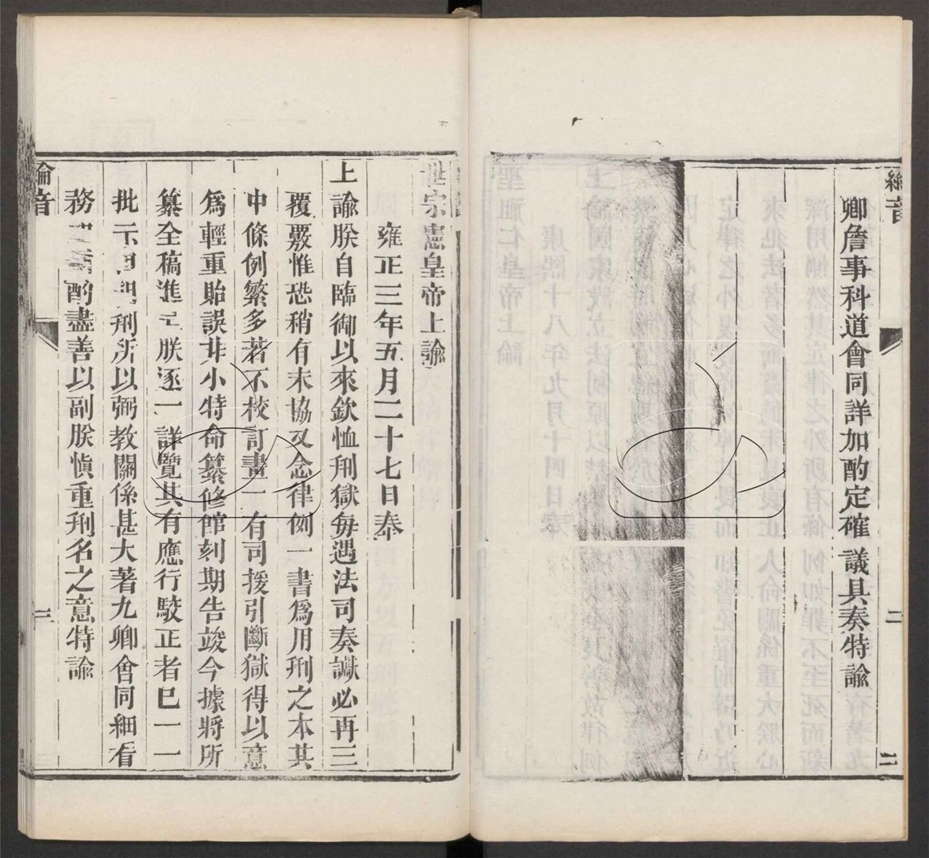 綸音
卿詹事科道會同詳加酌定確議具奏特諭
二
世宗憲皇帝上諭
雍正三年五月二十七日奉
上諭朕自臨御以來欽恤刑獄每遇法司奏讞必再三
覆覈惟恐稍有未協又念律例一書爲用刑之本其
中條例繁多若不校訂畫一有司援引斷獄得以意
爲輕重貽誤非小特命纂修館刻期告竣今據將所
纂全稿進呈朕逐一詳覽其有應行駁正者已一一
批示刑所以弼教關係甚大著九卿會同細看
務酌盡善以副朕慎重刑名之意特諭
綸音
三